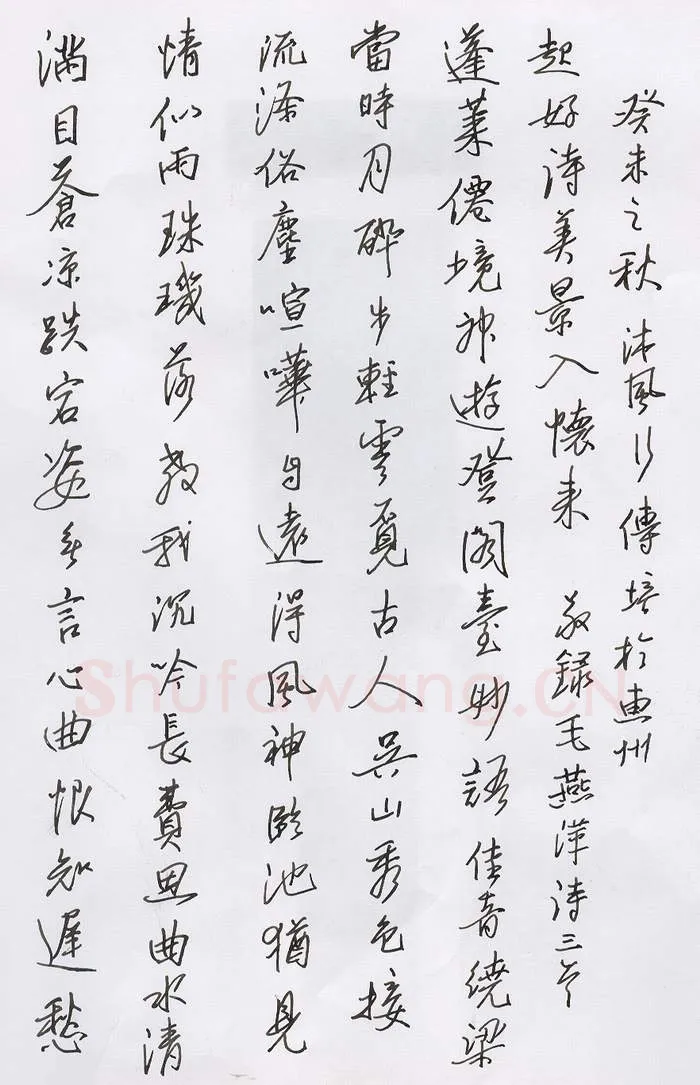 滿目蒼凉跌宕姿無言心曲恨知遲愁
情似雨珠璣落教我沉吟長費思曲水清
流滌俗塵喧嘩自遠得風神臨池猶見
當時月醉步輕雲覓古人吳山秀色接
蓬萊僊境神遊登閣臺妙語佳音繞梁
起好詩美景入懷来 敬錄毛燕萍詩三首
癸未之秋沐風行傳培於惠州
Shufawang.CN